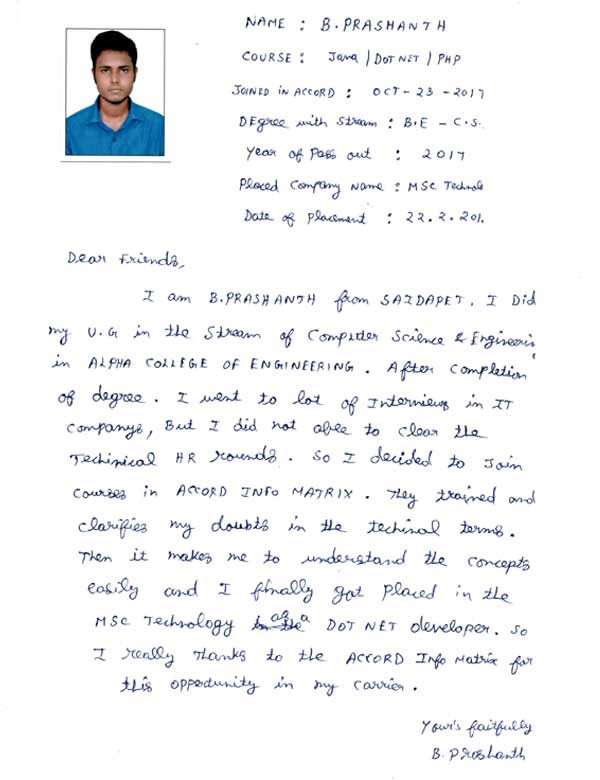 NAME : B.PRASHANTH
COURSE : Java / DOT NET / PHP
JOINED IN ACCORD : OCT - 23 - 2017
DEgree with Stream : B.E - C.S.
Year of Pass out : 2017
Placed Company Name : MSC Technolo
Date of Placement : 22.2.201
Dear Friends,
I am B.PRASHANTH from SAIDAPET. I Did
my U.G in the Stream of Computer Science & Engineerin
in ALPHA COLLEGE OF ENGINEERING. After completion
of degree. I went to lot of Interviews in IT
companys, But I did not able to clear the
Techinical HR rounds. So I decided to Join
Courses in ACCORD INFO MATRIX. They trained and
clarifies my doubts in the techinal terms.
Then it makes me to understand the concepts
easily and I finally got placed in the
MSC Technology as a DOT NET developer. So
I really Thanks to the ACCORD Info Matrix for
this opportunity in my carrier.
Your's faitfully
B. Prashanth